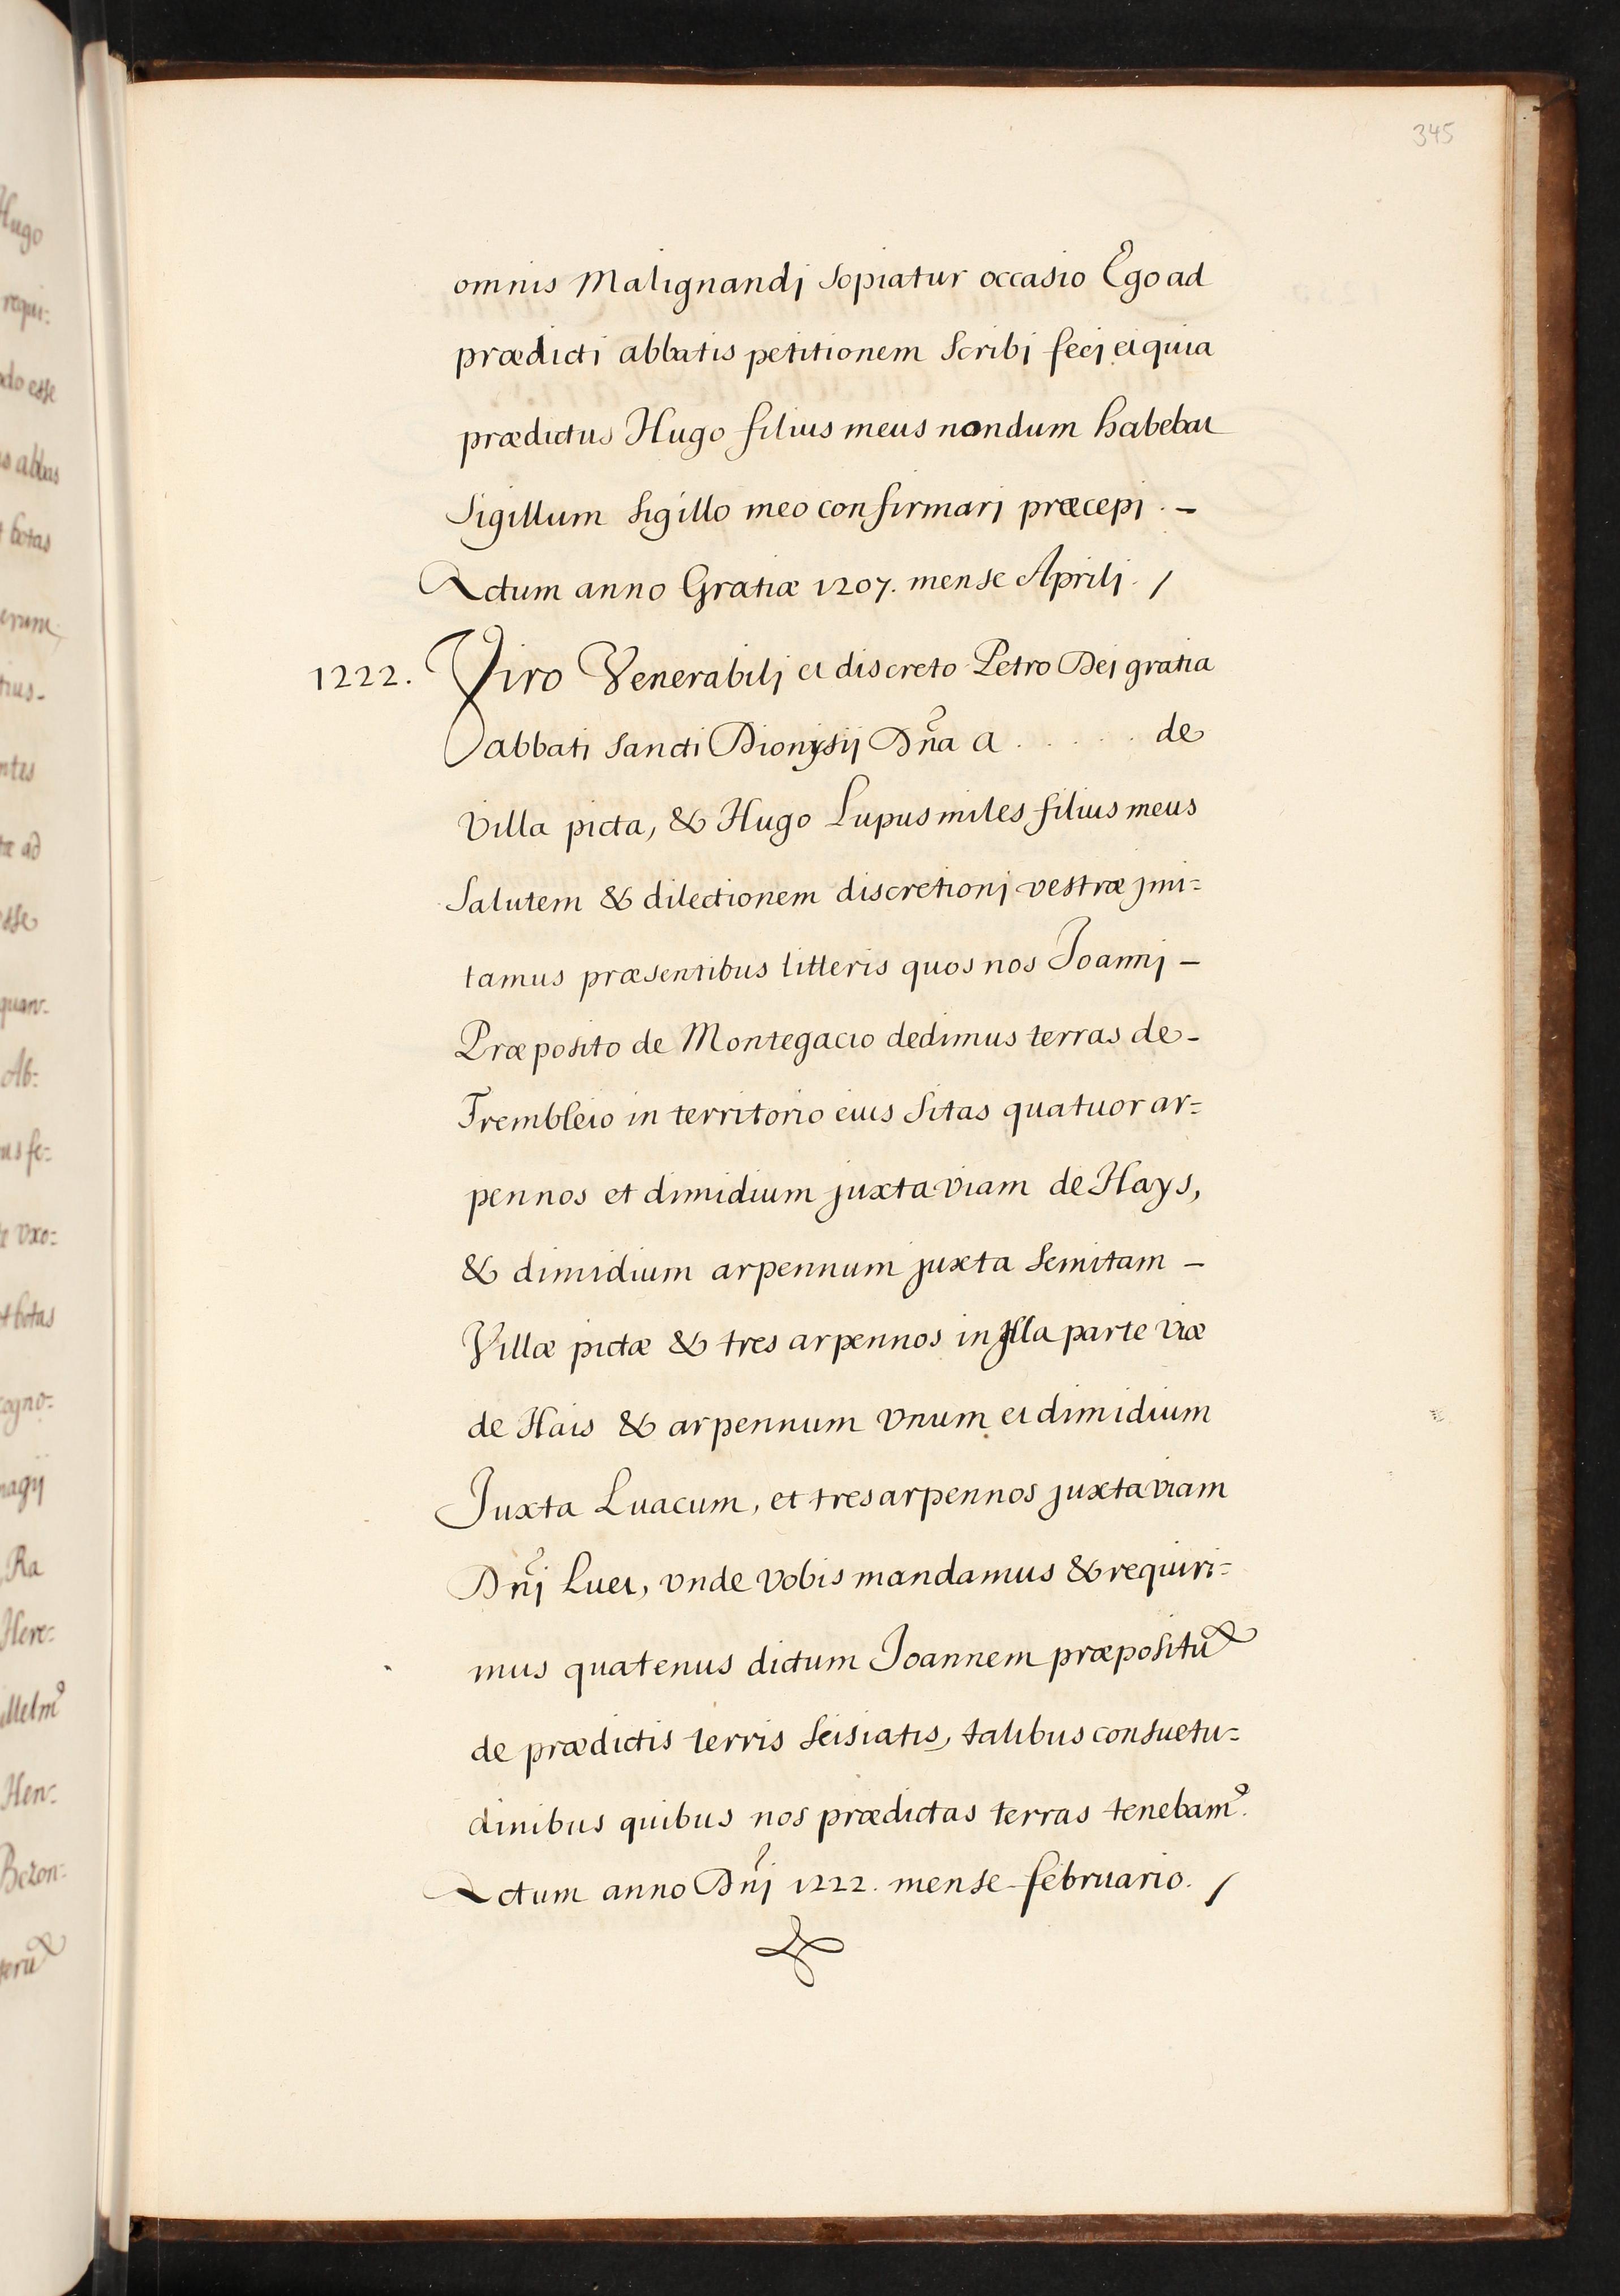 345
omnis Malignandj sopiatur occasio Ego ad
prædicti abbatis petitionem scribj fecj et quia
prædictus Hugo filius meus nondum habebat
sigillum sigillo meo confirmarj præcepj. –
Actum anno Gratiæ 1207. mense Aprilj. /
1222. Viro Venerabilj et discreto Petro Dej gratia
abbati sancti Dionysij Dña a . . . . . . de
Villa picta, & Hugo Lupus miles filius meus
salutem & dilectionem discretionj vestræ jmi=
tamus præsentibus litteris quos nos Joannj –
Præposito de Montegacio dedimus terras de -
Trembleio in territorio eius sitas quatuor ar=
pennos et dimidium juxta viam de Hays,
& dimidium arpennum juxta semitam –
Villæ pictæ & tres arpennos in jlla parte viæ
de Hais & arpennum vnum et dimidium
Juxta Luacum, et tres arpennos juxta viam
Dñj Luet, vnde vobis mandamus & requiri=
mus quatenus dictum Joannem præpositũ
de prædictis terris seisiatis, talibus consuetu=
dinibus quibus nos prædictas terras tenebam9.
Actum anno Dñj 1222. mense februario. /
Hugo
requi:
odo esse
s abbas
t botas
erum,
tius-
ntes
æ ad
sse
quan-
Ab:
us fe:
e vxo:
et botas
cogno:
nagij
Ra
Here:
illelm9
Hen:
Bezon:
terũ